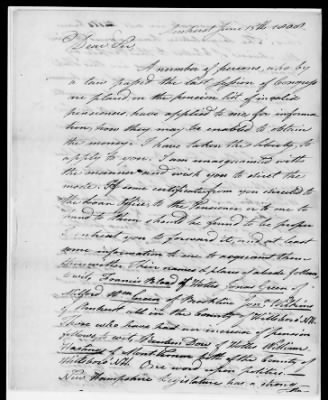 Amherst June 13th 1808
Dear Sir,
A number of persons, who by
a law passed the last session of Congress
are placed, on the pension list of invalid
pensioners, have applied to me for informa
tion, how they may be enabled to obtain
the money. I have taken the liberty, to
apply to you. I am unacquainted with
the manner and wish you to direct the
mode. If some certificate from you directed to
the Loan Office, to the Pensioners or to me to
hand to them should be found to be proper
I entreat you to forward it, and at least
some information to me to acquaint them
therewith. Their names & places of abode &
viz. Francis Blood of Hollis Jonas Green of
Milford Wm Green of Brookline Jona. Wilkins
of Amherst all in the County of Hillsboro' NH.
those who have had an increase of pension
follows, to wit, Brunden Dore of Hollis William
Hastings of both of the County of
Hillsboro' NH. One word upon politics. —
New Hampshire Legislature has a strong